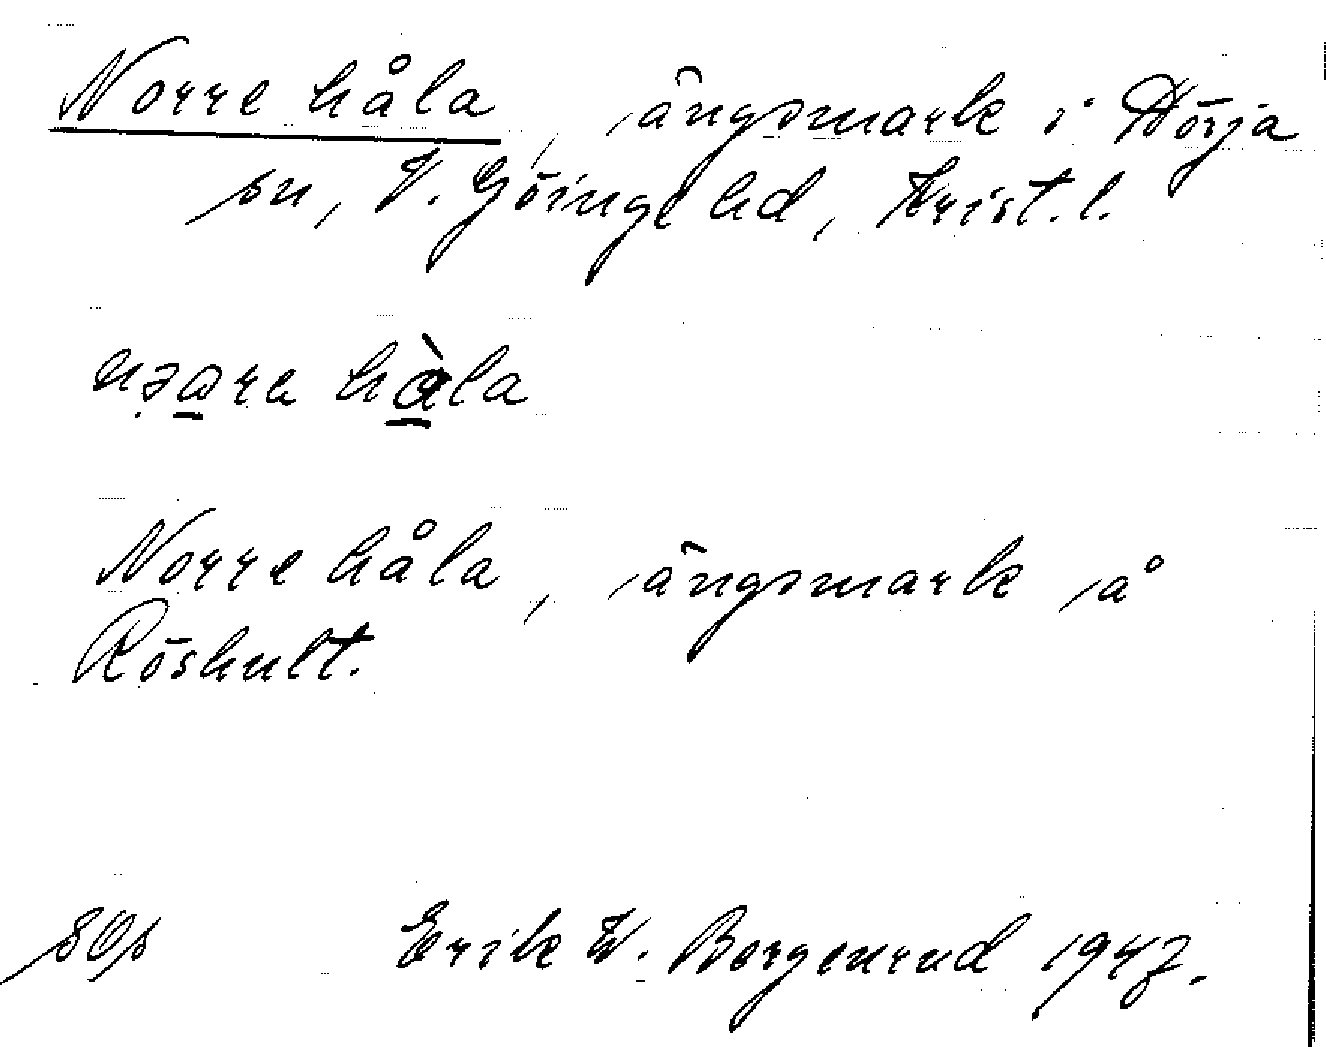 Norre håla, ängsmark i Hörja
sn, V. Göinge hd, Krist. l.
håla
Norre håla, ängsmark å
Röshult.
Erik W. Borgenrud 1947.